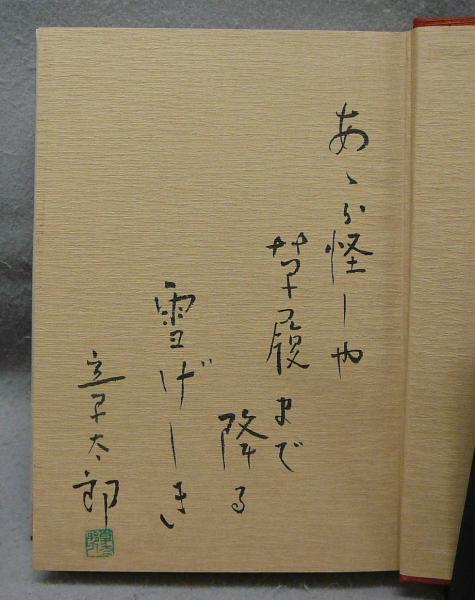 あゝら怪しや
草履まで
降る
雪げしき
章太郎